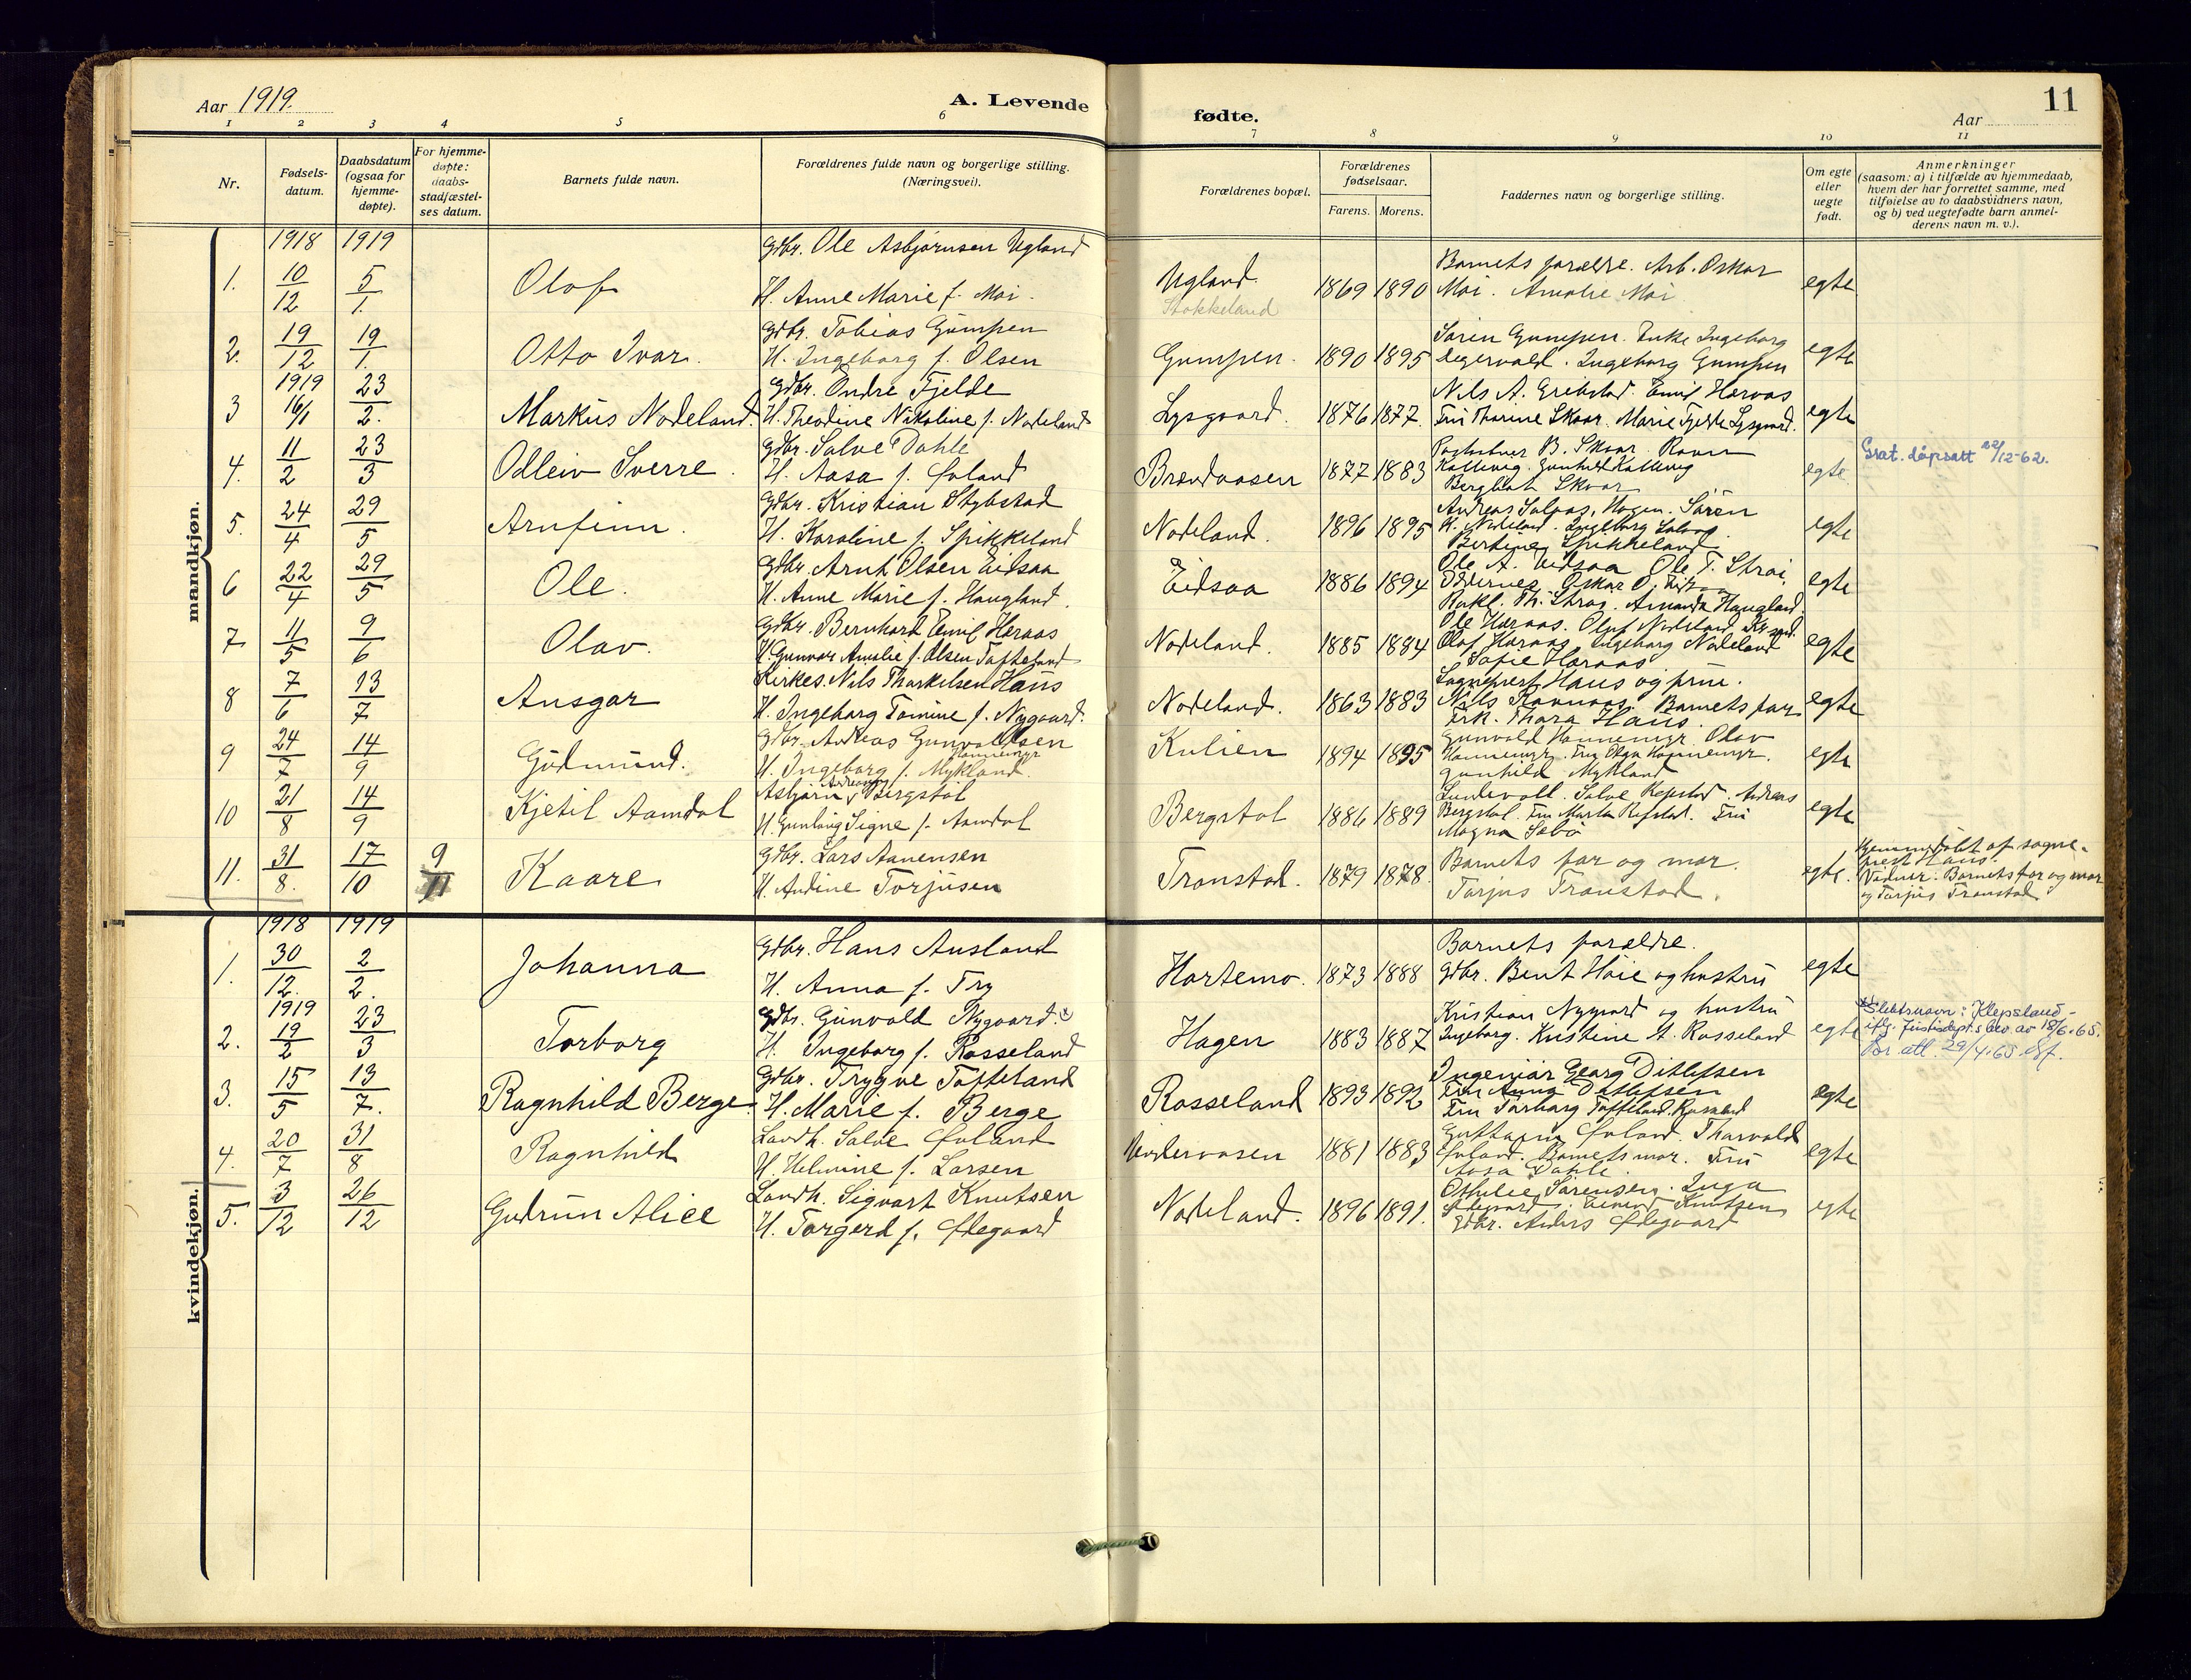 Aar 1919.
A. Levende
fødte.
Aar
11
1
2
3
4
5
6
7
8
9
10
11
Nr.
Fødsels-
datum.
Daabsdatum
(ogsaa for
hjemme-
døpte).
For hjemme-
døpte:
daabs-
stadfæstel-
ses datum.
Barnets fulde navn.
Forældrenes fulde navn og borgerlige stilling.
(Næringsvei).
Forældrenes bopæl.
Forældrenes
fødselsaar.
Farens. Morens.
Faddernes navn og borgerlige stilling.
Om egte
eller
uegte
født.
Anmerkninger
(saasom: a) i tilfælde av hjemmedaab,
hvem der har forrettet samme, med
tilføielse av to daabsvidners navn,
og b) ved uegtefødte barn anmel-
derens navn m. v.).
mandkjøn.
1918 1919
1. 10/12 5/1. Olof
Gdbr. Ole Asbjørnsen Ugland
H. Anne Marie f. Moi.
Ugland.
Stokkeland
1869 1890
Barnets forældre. Arb. Oskar
Moi. Amalie Moi
egte
2. 19/12 19/1. Otto Ivar.
Gdbr. Tobias Gumpen
H. Ingeborg f. Olsen
Gumpen. 1890 1895
Søren Gumpen. Enke Ingeborg
Segervold. Ingeborg Gumpen
egte
1919
3 16/1 23/2. Markus Nodeland.
Gdbr. Ondre Fjelde
H. Theodine Nikoline f. Nodeland
Lysgaard. 1876 1877.
Nils A. Grebstad. Emil Høraas
Fru Thorine Skaar. Marie Fjelde Lysgaard.
egte
4. 11/2 23/3 Odleiv Sverre.
Gdbr. Salve Dahle
H. Aasa f. Øvland
Brændaasen 1877 1883
B. Skaar.
Kallevig. Gunhild Kallevig
Bergliot Skaar
egte
Grat. dåpsatt 22/12-62.
5. 24/4 29/5 Arnfinn.
Gdbr. Kristian Stybstad
H. Karoline f. Spikkeland
Nodeland. 1896 1895
Andreas Hagen. Søren
K. Nodeland. Ingeborg
Bertine Spikkeland
egte
6 22/4 29/5 Ole.
Gdbr. Arnt Olsen Eidsaa
H. Anne Marie f. Haugland.
Eidsaa 1886 1894
Ole A. Eidsaa Ole T. Strai,
Oddernes. Oskar O.
Th. Strai. Amanda Haugland.
egte
7 11/5 9/6 Olav.
Gdbr. Bernhard Emil Høraas
H. Gunvor Amalie f. Olsen Tofteland
Nodeland. 1885 1884
Ole Høraas. Olaf Nodeland
Olaf Høraas Ingeborg Nodeland
Sofie Høraas
egte
8 7/6 13/7 Ansgar
Kirkes. Nils Thorkelsen Haus
H. Ingeborg Tomine f. Nygaard.
Nodeland. 1863 1883
Sogneprest Haus og frue.
Nils Ravnaas. Barnets far
Frk. Thora Haus.
egte
9 24/7 14/9 Gudmund.
Gdbr. Andreas Gunvaldsen
Honnemyr
H. Ingeborg f. Mykland.
Kulien 1894 1895
Gunvald Honnemyr Olav
Honnemyr. Fru Olga Honnemyr.
Gunhild Mykland
egte
10 21/8 14/9 Kjetil Aamdal
Andreas
Asbjørn Bergstøl
H. Gunlaug Signe f. Aamdal
Bergstøl 1886 1889
Salve Repstad. Andreas
Bergstøl. Fru Marta Repstad. Fru
Magna Sebø
egte
11. 31/8. 17/10 9/11 Kaare
Gdbr. Lars Aanensen
H. Andine Torjusen
Tronstad. 1879 1878.
Barnets far og mor.
Torjus Tronstad.
egte.
Hjemmedøbt af sogne-
prest Haus.
Vidner: Barnets far og mor
og Torjus Tronstad
kvindekjøn.
1918 1919
1. 30/12. 2/2. Johanna
Gdbr. Hans Ausland
H. Anna f. Try
Hortemo. 1873 1888
Barnets forældre.
Gdbr. Bent Høie og hustru
egte
1919
2. 19/2 23/3 Torborg
Gdbr. Gunvald Nygaard. x
H. Ingeborg f. Rosseland
Hagen 1883 1887
Kristian Nygaard og hustru
Ingeborg. Kristine A. Rosseland
egte
Slektsnavn: Klepsland -
iflg. Justisdept.s bev. av 18/6-65.
29/4-65.
3. 15/5 13/7. Ragnhild Berge.
Gdbr. Trygve Tofteland
H. Marie f. Berge
Rosseland 1893 1892
Ingeniør Georg Ditlefsen
Fru Ditlefsen
Fru Torborg Tofteland. Rosseland
egte
4. 20/7 31/8 Ragnhild
Landh. Salve Øvland
H. Helmine f. Larsen
Underaasen 1881 1883
Øvland. Thorvald
Øvland. Barnets mor. Fru
Aasa Dahle.
egte
5. 3/12 26/12 Gudrun Alice
Landh. Sigvart Knutsen
H. Torgerd f. Ødegaard
Nodeland. 1896 1891.
Othilie Sørensen. Inga
Ødegaard. Knutsen
Gdbr. Anders Ødegaard
egte